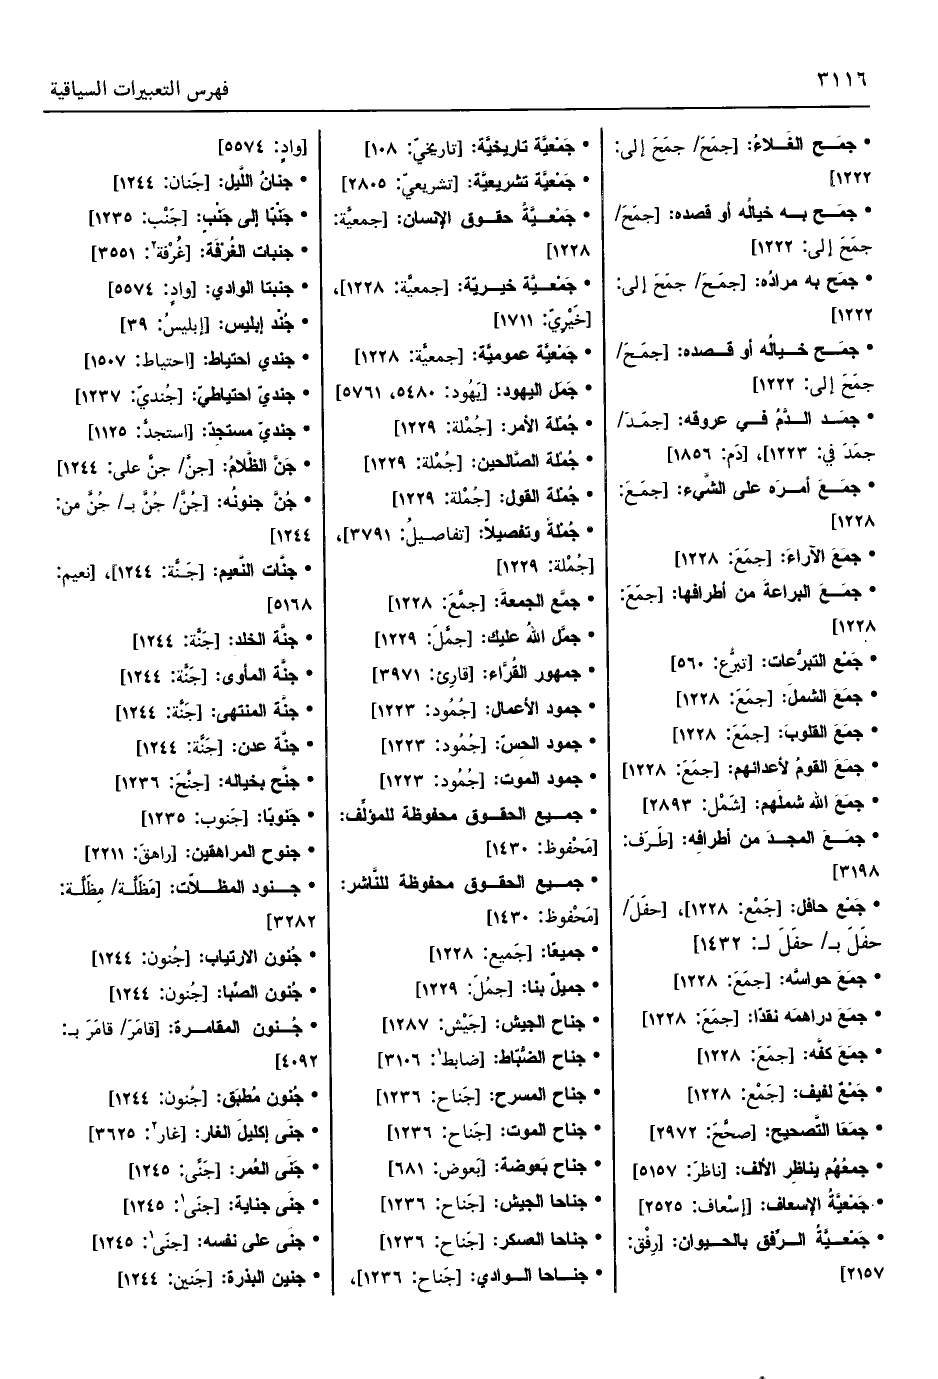 ٣١١٦
فهرس التعبيرات السياقية
• جمَـح الغَـلاءُ: [جمَحَ/ جمَحَ إلى:
١٢٢٢]
• جمَـح بـه خيالُه أو قصده: [جمَحَ/
جمَحَ إلى: ١٢٢٢]
• جمَح به مرادُه: [جمَـحَ/ جمَحَ إلى:
١٢٢٢]
• جمَـح خـيالُه أو قـصده: [جمَـحَ/
جمَحَ إلى: ١٢٢٢]
• جمَـد الـدَّمُ فـي عروقه: [جمَـدَ/
جمَدَ في: ١٢٢٣]، [دَم: ١٨٥٦]
• جمَـعَ أمـرَه على الشَّيء: [جمَـعَ:
١٢٢٨]
• جمَعَ الآراءَ: [جمَعَ: ١٢٢٨]
• جمَـعَ البراعةَ من أطرافها: [جمَعَ:
١٢٢٨]
• جَمْع التبرُّعات: [تبرُّع: ٥٦٠]
• جمَعَ الشملَ: [جمَعَ: ١٢٢٨]
• جمَعَ القلوبَ: [جمَعَ: ١٢٢٨]
• جمَعَ القومُ لأعدائهم: [جمَعَ: ١٢٢٨]
• جمَعَ الله شملَهم: [شَمْل: ٢٨٩٣]
• جمَـعَ المجـدَ من أطرافه: [طَرَف:
٣١٩٨]
• جَمْع حافل: [جَمْع: ١٢٢٨]، [حفَلَ/
حفَلَ بـ/ حفَلَ لـ: ١٤٣٢]
• جمَعَ حواسَّه: [جمَعَ: ١٢٢٨]
• جمَعَ دراهمَه نقدًا: [جمَعَ: ١٢٢٨]
• جمَعَ كفَّه: [جمَعَ: ١٢٢٨]
• جَمْعٌ لفيف: [جَمْع: ١٢٢٨]
• جمَعَا التَّصحيح: [صحَّحَ: ٢٩٧٢]
• جمعُهُم يناظِر الألف: [ناظرَ: ٥١٥٧]
• جَمْعيَّةُ الإسعاف: [إسْعاف: ٢٥٢٥]
• جَمْعـيَّةُ الـرِّفق بالحـيوان: [رِفْق:
٢١٥٧]
• جَمْعيَّة تاريخيَّة: [تاريخيّ: ١٠٨]
• جَمْعيَّة تشريعيَّة: [تشريعيّ: ٢٨٠٥]
• جَمْعـيَّةُ حقـوق الإنسان: [جمعيَّة:
١٢٢٨]
• جَمْعـيَّة خيـريّة: [جمعيَّة: ١٢٢٨]،
[خَيْرِيّ: ١٧١١]
• جَمْعيَّة عموميَّة: [جمعيَّة: ١٢٢٨]
• جَمَل اليهود: [يَهُود: ٥٤٨٠، ٥٧٦١]
• جُمْلَة الأمر: [جُمْلة: ١٢٢٩]
• جُمْلَة الصَّالحين: [جُمْلة: ١٢٢٩]
• جُمْلَة القول: [جُمْلة: ١٢٢٩]
• جُمْلةً وتفصيلاً: [تفاصـيلُ: ٣٧٩١]،
[جُمْلة: ١٢٢٩]
• جمَّع الجمعةَ: [جمَّعَ: ١٢٢٨]
• جمَّل اللهُ عليك: [جمَّلَ: ١٢٢٩]
• جمهور القُرَّاء: [قارئ: ٣٩٧١]
• جمود الأعمال: [جُمُود: ١٢٢٣]
• جمود الحسّ: [جُمُود: ١٢٢٣]
• جمود الموت: [جُمُود: ١٢٢٣]
• جمـيع الحقـوق محفوظة للمؤلِّف:
[مَحْفوظ: ١٤٣٠]
• جمـيع الحقـوق محفوظة للنَّاشر:
[مَحْفوظ: ١٤٣٠]
• جميعًا: [جَميع: ١٢٢٨]
• جميلٌ بنا: [جمُلَ: ١٢٢٩]
• جناح الجيش: [جَيْش: ١٢٨٧]
• جناح الضُّبّاط: [ضابط١: ٣١٠٦]
• جناح المسرح: [جَناح: ١٢٣٦]
• جناح الموت: [جَناح: ١٢٣٦]
• جناح بَعوضة: [بَعوض: ٦٨١]
• جناحا الجيش: [جَناح: ١٢٣٦]
• جناحا العسكر: [جَناح: ١٢٣٦]
• جنـاحا الـوادي: [جَناح: ١٢٣٦]،
[وادٍ: ٥٥٧٤]
• جنانُ اللَّيل: [جَنان: ١٢٤٤]
• جَنْبًا إلى جَنْب: [جَنْب: ١٢٣٥]
• جنبات الغُرْفَة: [غُرْفة٢: ٣٥٥١]
• جنبتا الوادي: [وادٍ: ٥٥٧٤]
• جُنْد إبليس: [إبليسُ: ٣٩]
• جندي احتياط: [احتياط: ١٥٠٧]
• جنديّ احتياطيّ: [جُنديّ: ١٢٣٧]
• جنديّ مستجدّ: [استجدَّ: ١١٢٥]
• جَنَّ الظَّلامُ: [جنَّ/ جنَّ على: ١٢٤٤]
• جُنَّ جنونُه: [جُنَّ/ جُنَّ بـ/ جُنَّ من:
١٢٤٤]
• جنَّات النَّعيم: [جَـنَّة: ١٢٤٤]، [نعيم:
٥١٦٨]
• جنَّة الخلد: [جَنَّة: ١٢٤٤]
• جنَّة المأوى: [جَنَّة: ١٢٤٤]
• جنَّة المنتهى: [جَنَّة: ١٢٤٤]
• جنَّة عدن: [جَنَّة: ١٢٤٤]
• جنَّح بخياله: [جنَّحَ: ١٢٣٦]
• جَنوبًا: [جَنوب: ١٢٣٥]
• جنوح المراهقين: [راهقَ: ٢٢١١]
• جـنود المظـلاّت: [مَظَلَّـة/ مِظَلَّـة:
٣٢٨٢]
• جُنون الارتياب: [جُنون: ١٢٤٤]
• جُنون الصِّبا: [جُنون: ١٢٤٤]
• جُـنون المقامـرة: [قامَرَ/ قامَرَ بـ:
٤٠٩٢]
• جُنون مُطبَق: [جُنون: ١٢٤٤]
• جنَى إكليلَ الغار: [غار٢: ٣٦٢٥]
• جَنَى العُمر: [جَنًى: ١٢٤٥]
• جنَى جناية: [جنَى١: ١٢٤٥]
• جنَى على نفسه: [جنَى١: ١٢٤٥]
• جنين البذرة: [جَنين: ١٢٤٤]